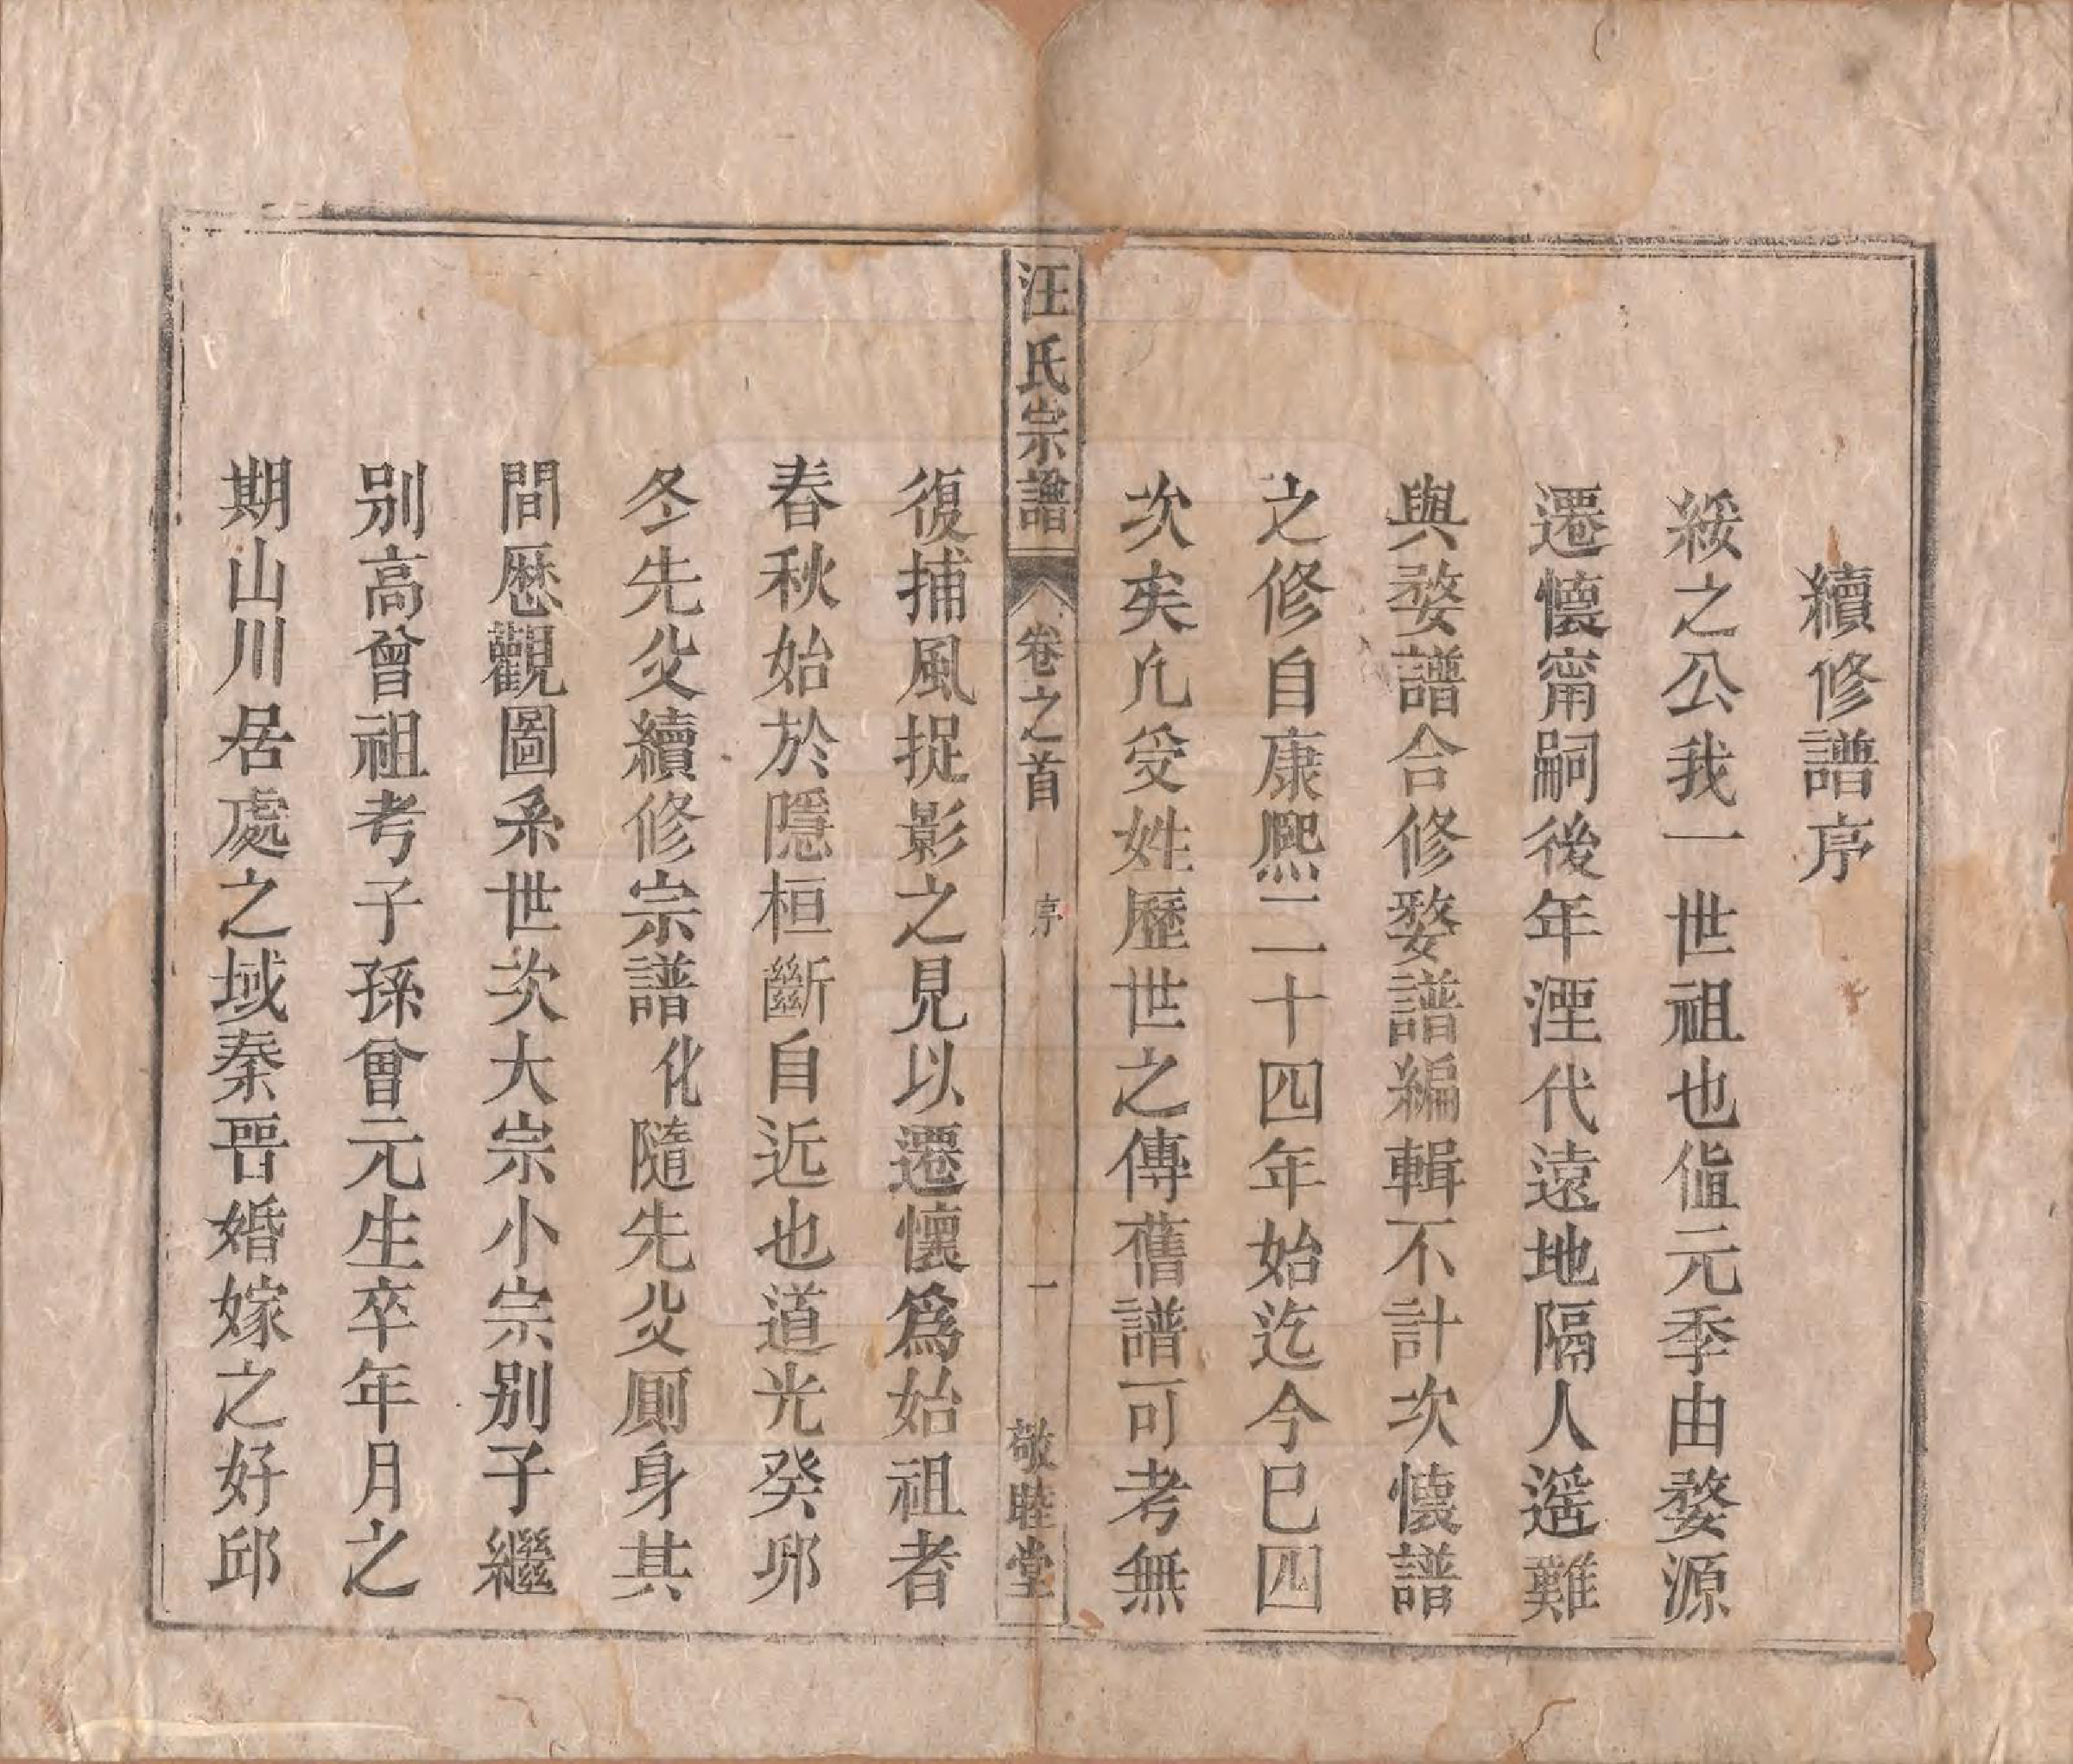 續修譜序
綏之公我一世祖也值元季由婺源
遷懷甯嗣後年湮代遠地隔人遥難
與婺譜合修婺譜編輯不計次懷譜
之修自康熙二十四年始迄今已四
次矣凡受姓歷世之傳舊譜可考無
汪氏宗譜 卷之首 序 一 敬睦堂
復捕風捉影之見以遷懷爲始祖者
春秋始於隱桓斷自近也道光癸夘
冬先父續修宗譜化隨先父厠身其
間歴觀圖系世次大宗小宗别子繼
别高曾祖考子孫曾元生卒年月之
期山川居處之域秦晋婚嫁之好邱